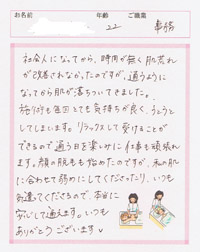 お名前 年齢 ご職業
22 事務
社会人になってから、時間が無く肌荒れ
が改善されなかったのですが、通うように
なってから肌が落ちついてきました。
施術も毎回とても気持ちが良く、うとうと
してしまいます。リラックスして受けることが
できるので通う日を楽しみに仕事も頑張れ
ます。顔の脱毛も始めたのですが、私の肌
に合わせて弱めにしてくださったり、いつも
気遣ってくださるので、本当に
安心して通えます。いつも
ありがとうございます